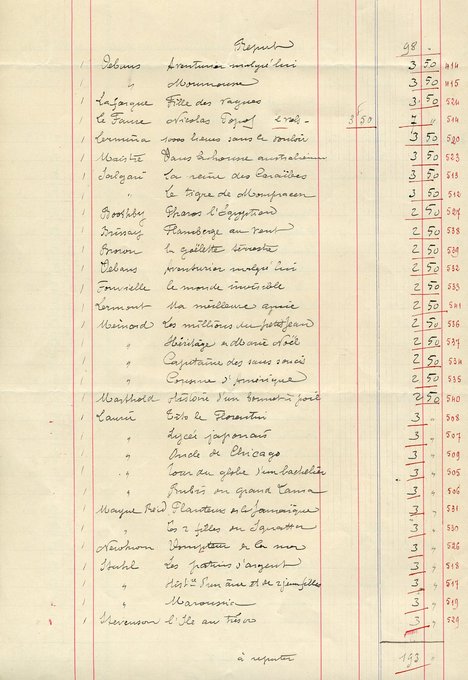 Report 98 "
1 Debans Aventurier malgré lui 3 50 414
1 " Moumousse 3 50 415
1 Lafargue Fille des vagues 3 50 524
1 Le Faure Nicolas Pépof 2 vols. 3 50 7 " 514
1 Lermina 1000 lieues sans le vouloir 3 50 520
1 Maistre Dans la brousse australienne 3 50 523
1 Salgari La reine des Caraïbes 3 50 513
1 " Le tigre de Mompracem 3 50 512
1 Boothby Pharos l'Égyptien 2 50 527
1 Brissay Flamberge au vent 2 50 538
1 Brown la goélette terrestre 2 50 529
1 Debans Aventurier malgré lui 2 50 532
1 Fonvielle le monde invisible 2 50 535
1 Lermont Ma meilleure amie 2 50 541
1 Meinord Les millions du petit Jean 2 50 536
1 " Héritage de Marie Noël 2 50 537
1 " Capitaine des sans souci 2 50 534
1 " Couronne d'Amérique 2 50 535
1 Marthold Histoire d'un bonnet à poil 2 50 540
1 Laurie Tito le Florentin 3 " 508
1 " Lycée japonais 3 " 507
1 " Oncle de Chicago 3 " 509
1 " Tour du globe d'un bachelier 3 " 505
1 " Rubis du grand Lama 3 " 506
1 Mayne Reid Planteurs de la Jamaïque 3 " 531
1 " Les 2 filles du Squatter 3 " 530
1 Dompteur de la mer 3 " 526
1 Stahl Les patins d'argent 3 " 518
1 " Hist^re d'un âne et de 2 jeunes filles 3 " 517
1 " Maroussia 3 " 519
1 Stevenson l'Ile au trésor 3 " 529
à reporter 193 "